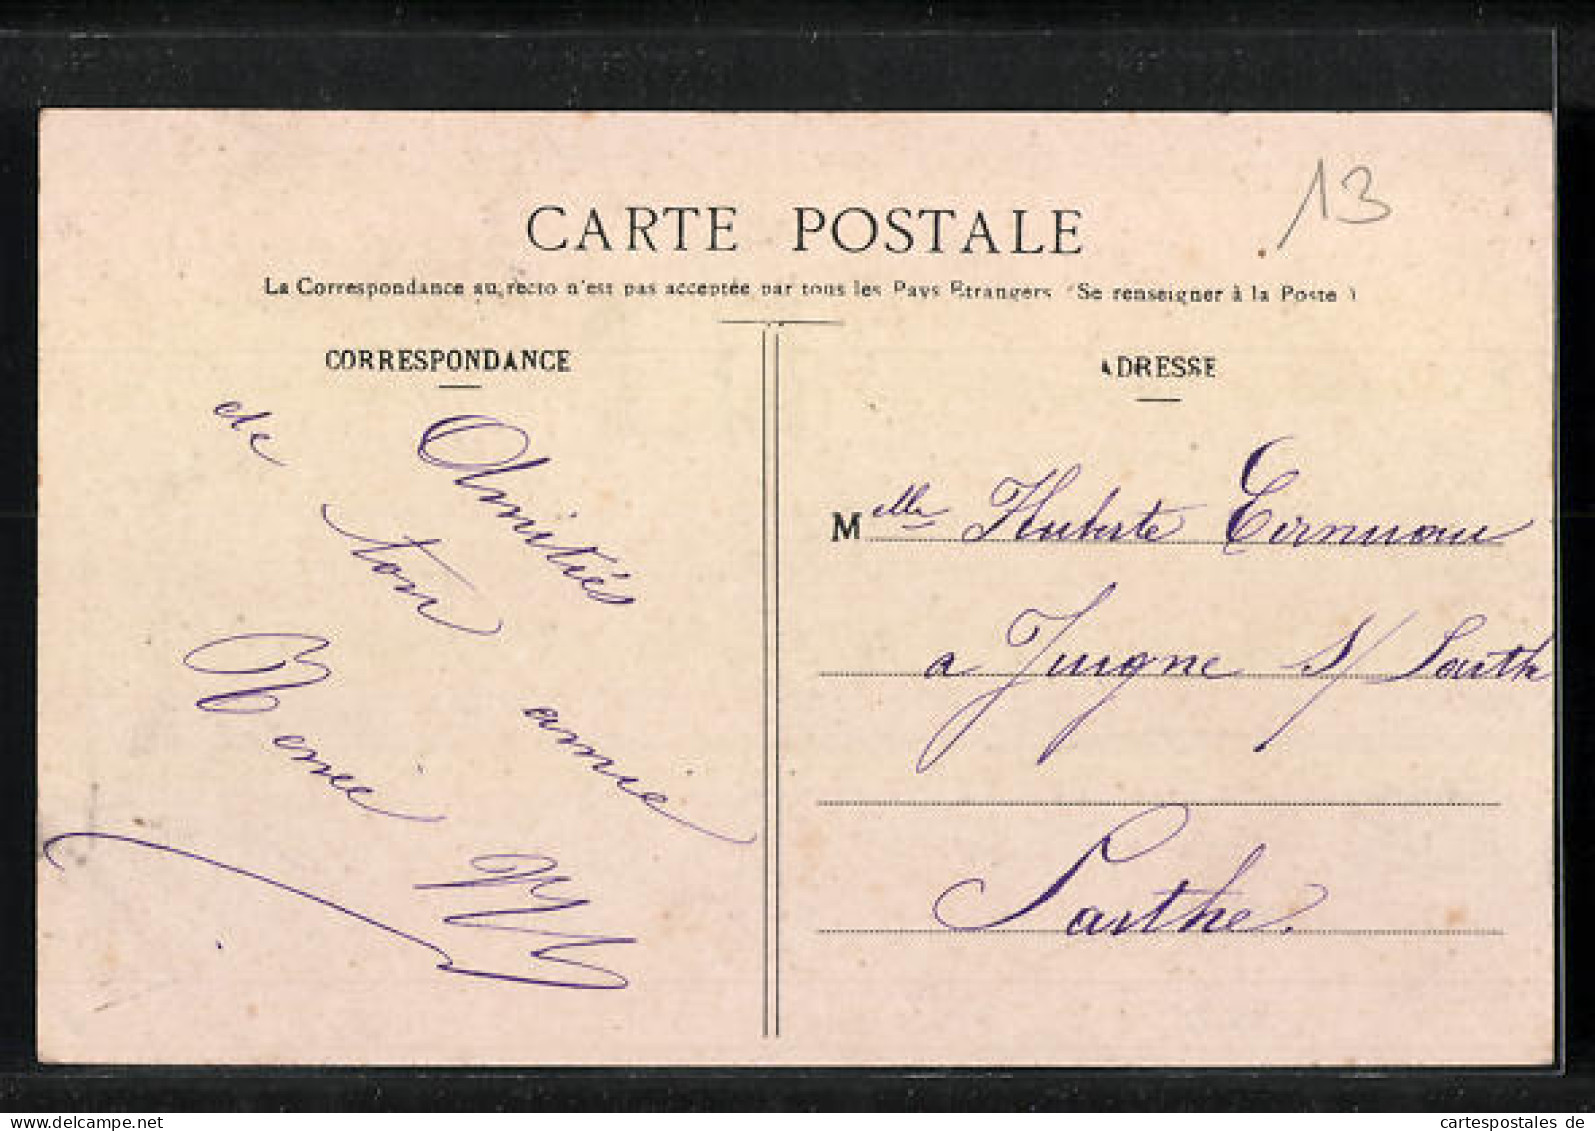 13
CARTE POSTALE
La Correspondance au recto n'est pas acceptée par tous les Pays Etrangers (Se renseigner à la Poste)
CORRESPONDANCE
Amitiés
de ton amie
Renée M
ADRESSE
Melle Huberte
a Juigné s/ Sarthe
Sarthe.
cartespostales de